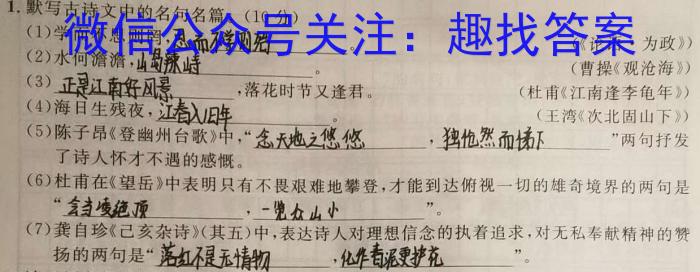 1.默写古诗文中的名句名篇。(10分)
(1)学而不思则罔,思而不学则殆。(《论语·为政》)
微信公众号关注：趣找答案
(2)水何澹澹,山岛竦峙。(曹操《观沧海》)
(3)正是江南好风景,落花时节又逢君。(杜甫《江南逢李龟年》)
(4)海日生残夜,江春入旧年。(王湾《次北固山下》)
(5)陈子昂《登幽州台歌》中,“念天地之悠悠,独怆然而悌下”两句抒发
了诗人怀才不遇的感慨。
(6)杜甫在《望岳》中表明只有不畏艰难地攀登,才能到达俯视一切的雄奇境界的两句是
“会当凌绝顶,一览众山小”。
(7)龚自珍《己亥杂诗》(其五)中,表达诗人对理想信念的执着追求,对无私奉献精神的赞
扬的两句是“落红不是无情物,化作春泥更护花”。